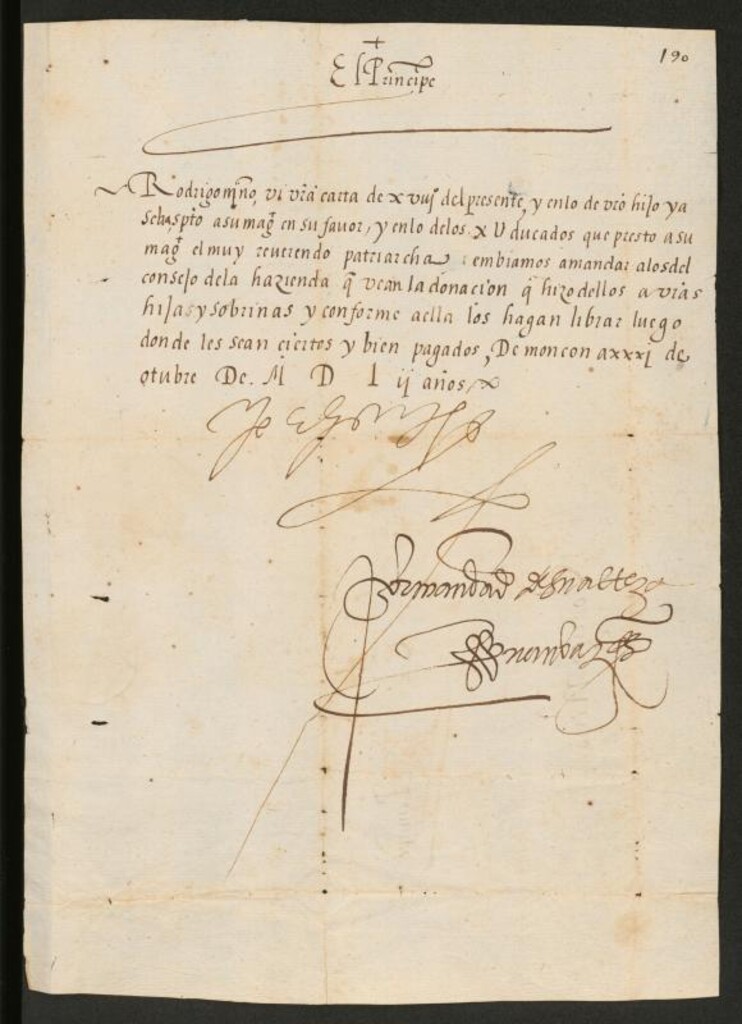 190
+
El Principe
Rodrigo mjno, vi vr̃a carta de xviij del presente, y en lo de vr̃o hijo ya
se ha scripto a su mag̃ en su favor, y en lo delos x U ducados que presto a su
mag̃ el muy reverendo patriarcha embiamos a mandar a los del
consejo dela hazienda q̃ vean la donacion q̃ hizo dellos a vr̃as
hijas y sobrinas y conforme a ella los hagan librar luego
donde les sean ciertos y bien pagados, De moncon a xxxj de
otubre De. M D L ij años
Yo el principe
Por mandado de su alteza